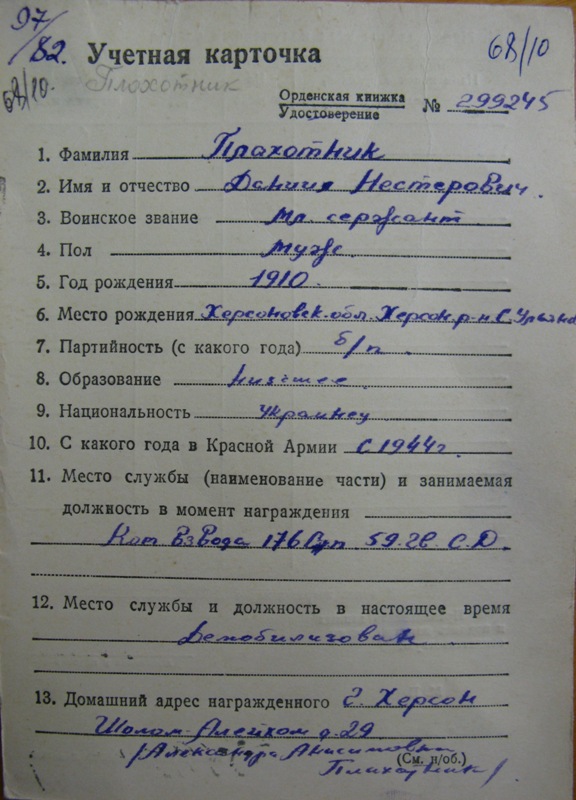 97/82.
68/10
68/10.
Учетная карточка
Плохотник
Орденская книжка
Удостоверение № 299245
1. Фамилия Плахотник
2. Имя и отчество Даниил Нестерович.
3. Воинское звание Мл. сержант
4. Пол Муж.
5. Год рождения 1910.
6. Место рождения Херсоновск. обл. Херсон. р-н С.
7. Партийность (с какого года) б/п.
8. Образование низшее
9. Национальность Украинец
10. С какого года в Красной Армии С 1944г.
11. Место службы (наименование части) и занимаемая
должность в момент награждения
Ком взвода 176 сп 59. гв. С.Д.
12. Место службы и должность в настоящее время
Демобилизован
13. Домашний адрес награжденного г. Херсон
Шолом-Алейхом д. 29
/Александра Анисимовна
(См. н/об.)
Плахотник/